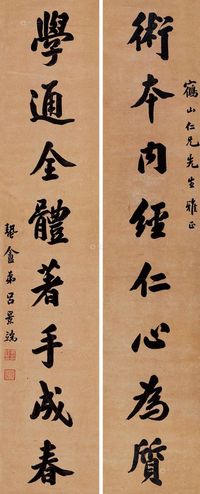 鶴山仁兄先生雅正
術本内經仁心為質
學通全體著手成春
弟呂景端